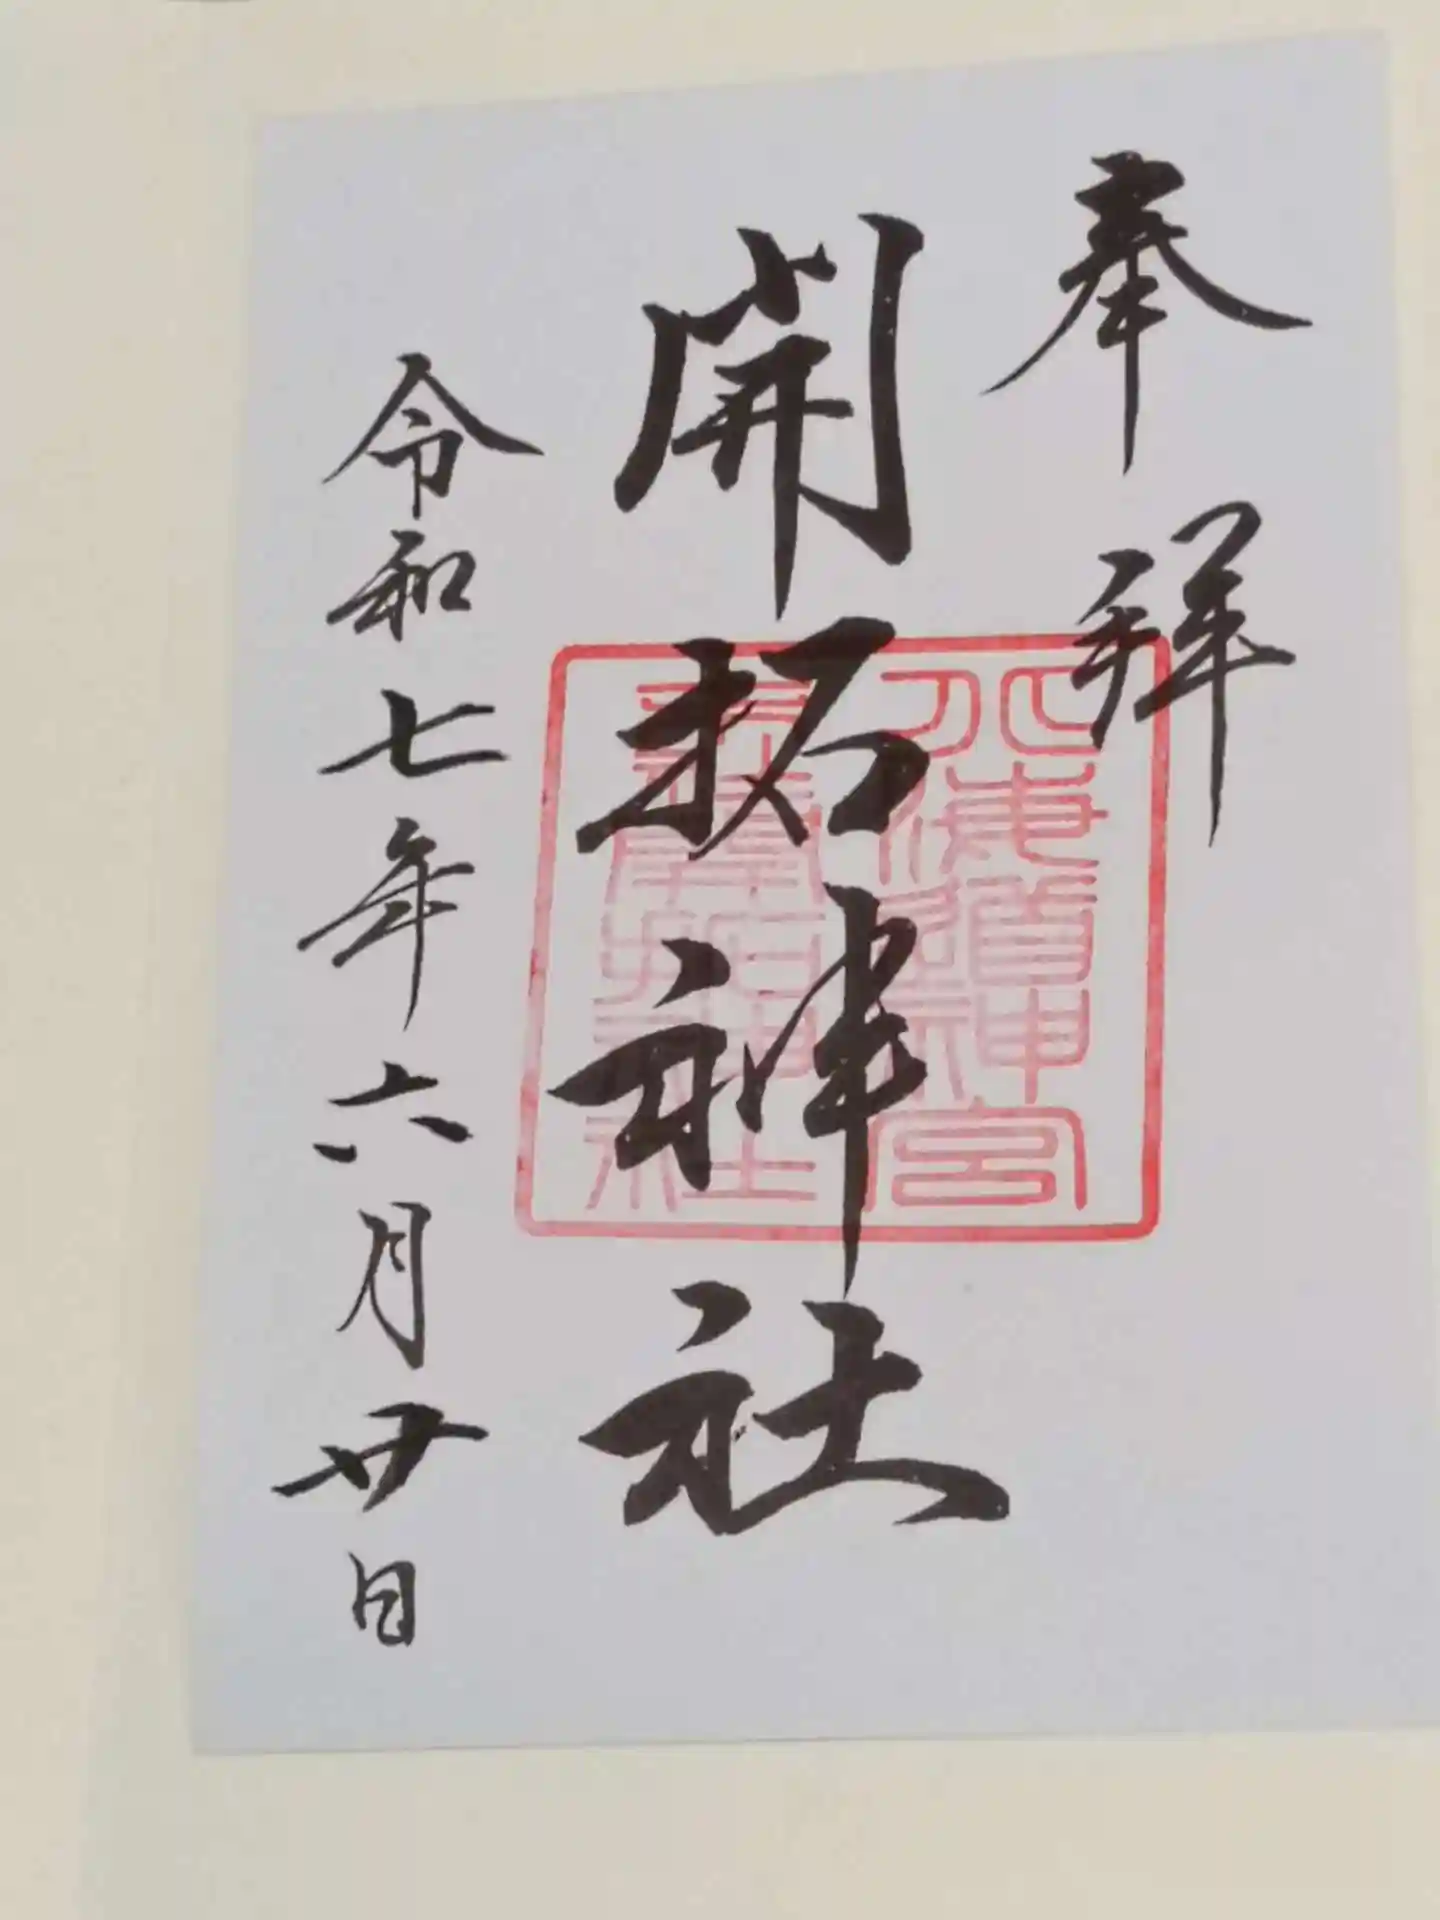 奉拝
開拓神社
北海道神宮
末社開拓神社
令和七年六月廿日